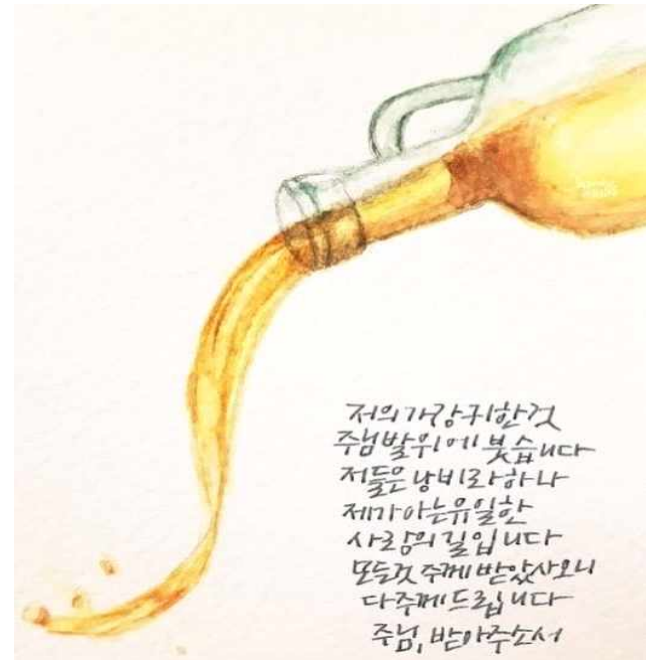 저의 가장 귀한 것
주님 발 위에 붓습니다
저들은 낭비라 하나
제가 아는 유일한
사랑의 길입니다
모든것 주께 받았사오니
다 주께 드립니다
주님, 받아주소서